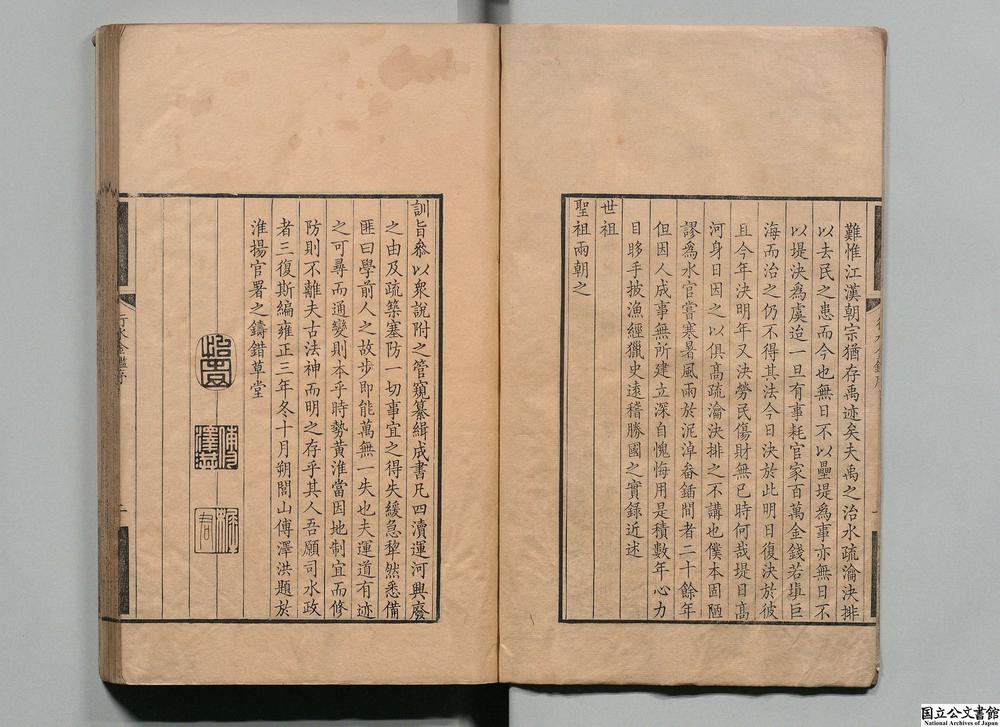 難惟江漢朝宗猶存禹迹矣夫禹之治水疏瀹決排
以去民之患而今也無日不以壘堤為事亦無日不
以堤決為虞迨一旦有事耗官家百萬金錢若塡巨
海而治之仍不得其法今日決於此明日復決於彼
且今年決明年又決勞民傷財無已時何哉堤日高
河身日因之以俱高疏瀹決排之不講也僕本固陋
謬為水官嘗寒暑風雨於泥淖畚鍤間者二十餘年
但因人成事無所建立深自愧悔用是積數年心力
目眵手披漁經獵史遠稽勝國之實錄近述
世祖
聖祖兩朝之
訓旨叅以衆說附之管窺纂緝成書凡四瀆運河興廢
之由及疏築塞防一切事宜之得失緩急犂然悉備
匪曰學前人之故步即能萬無一失也夫運道有迹
之可尋而通變則本乎時勢黃淮當因地制宜而修
防則不離夫古法神而明之存乎其人吾願司水政
者三復斯編雍正三年冬十月朔閭山傅澤洪題於
淮揚官署之鑄錯草堂
傅澤洪
行水金鑑序
二
国立公文書館
National Archives of Japan